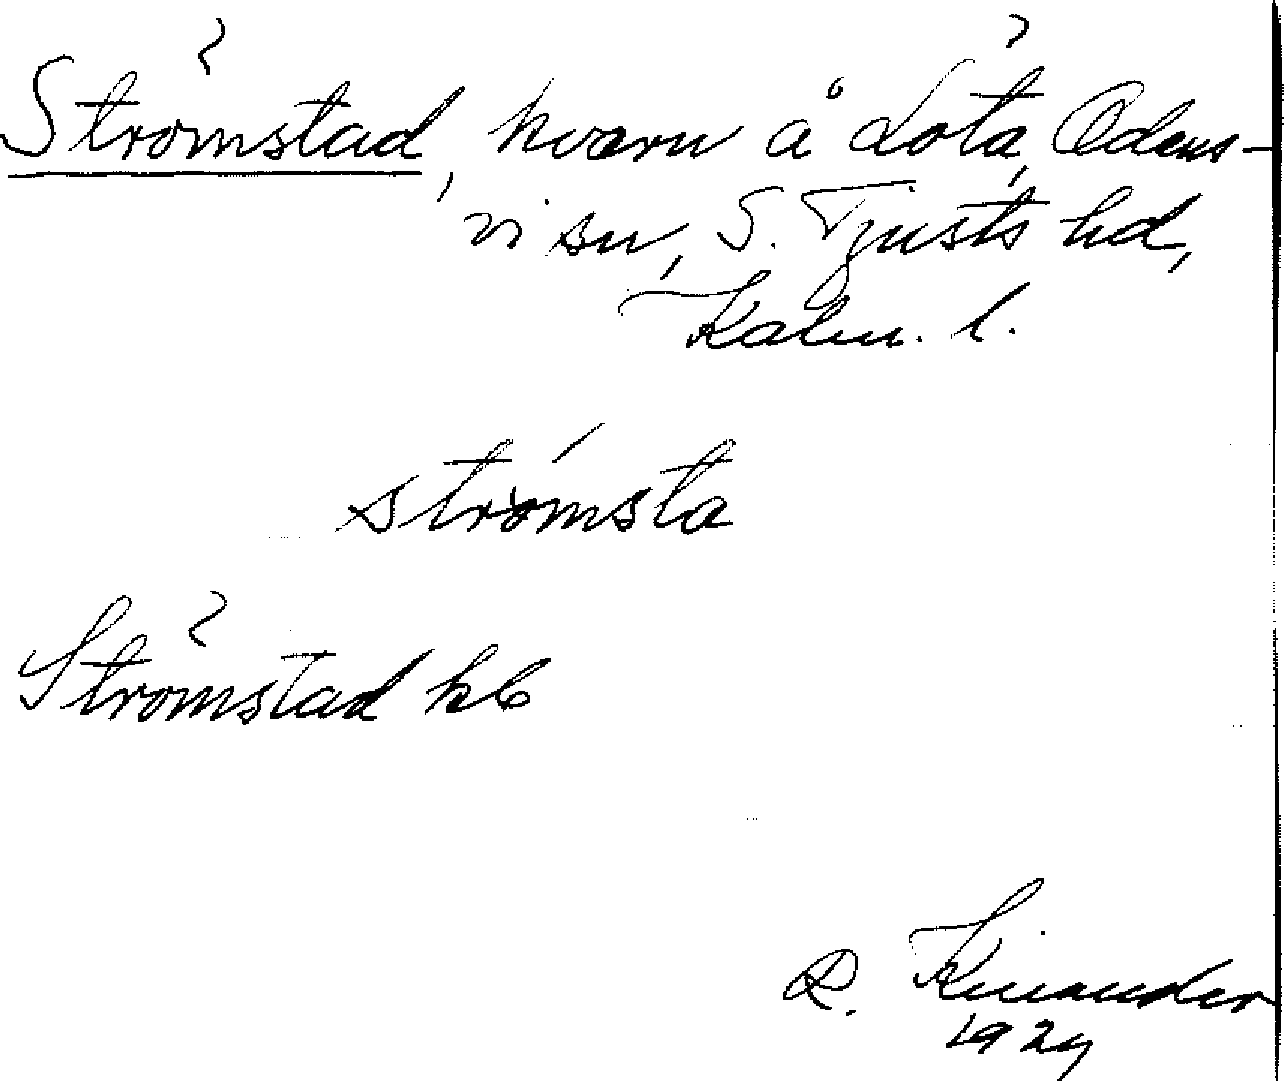 Strömstad, kvarn å Löta, Odens-
vi sn, S. Tjusts hd,
Kalm. l.
strömsta
Strömstad kb
R. Kinander